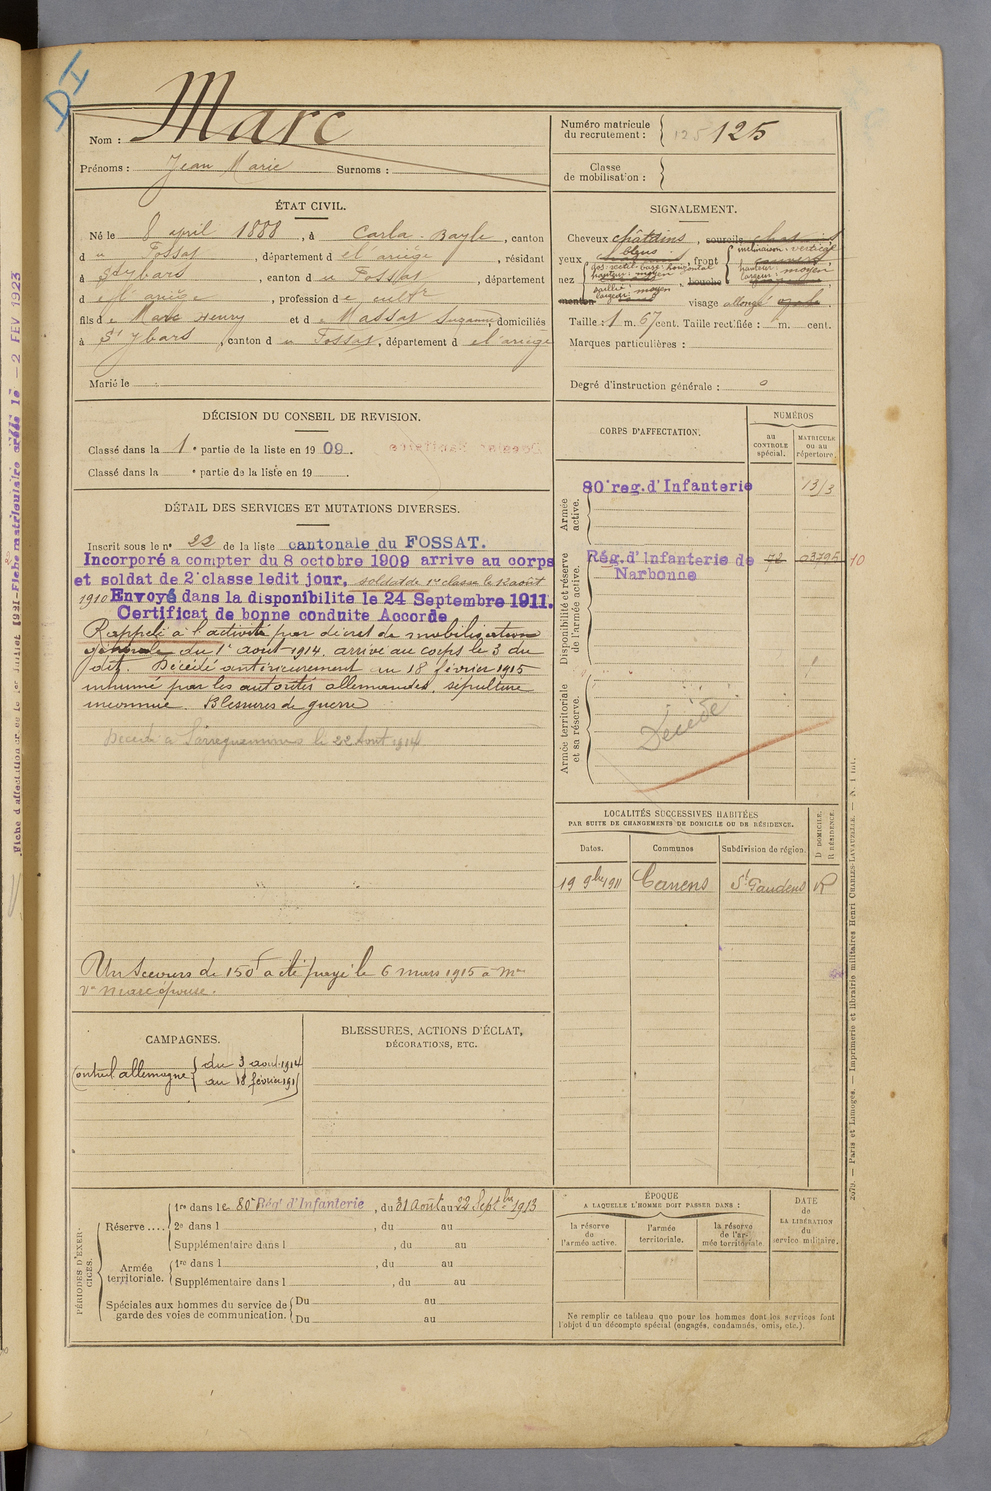 DI
Nom : Marc
Prénoms : Jean Marie Surnoms :
Numéro matricule
du recrutement : 125 125
Classe
de mobilisation :
ÉTAT CIVIL.
Né le 8 april 1888, à Carla-Bayle, canton
du Fossat, département de l'ariège, résidant
à St ybars, canton du Fossat, département
de l'ariège, profession de cultr
fils de Marc Henry et de Massat Suzanne, domiciliés
à St ybars, canton du Fossat, département de l'ariège
Marié le
SIGNALEMENT.
Cheveux châtains, sourcils chat
yeux bleus, front inclinaison: verticale
hauteur: moyen
largeur: moyen
nez dos: rectil-base: horizontal
hauteur: moyen
saillie: moyen
largeur: moyen, bouche
menton visage allongé ovale
Taille : 1 m. 67 cent. Taille rectifiée : m. cent.
Marques particulières :
Degré d'instruction générale :
DÉCISION DU CONSEIL DE REVISION.
Classé dans la 1e partie de la liste en 1909.
Classé dans la e partie de la liste en 19
CORPS D'AFFECTATION.
NUMÉROS
au
CONTROLE
spécial.
MATRICULE
ou au
répertoire.
Armée
active.
80e reg. d'Infanterie
Disponibilité et réserve
de l'armée active.
Rég. d'Infanterie de
Narbonne
72 03795 10
Armée territoriale
et sa réserve.
Décédé
DÉTAIL DES SERVICES ET MUTATIONS DIVERSES.
Inscrit sous le n° 22 de la liste cantonale du FOSSAT.
Incorporé a compter du 8 octobre 1909 arrive au corps
et soldat de 2e classe ledit jour, soldat de 1re classe le 12 août
1910 Envoyé dans la disponibilité le 24 Septembre 1911.
Certificat de bonne conduite Accordé
Rappelé à l'activité par décret de mobilisation
générale du 1er aout 1914. arrivé au corps le 3 du
dit. Décédé antérieurement au 18 février 1915
inhumé par les autorités allemandes, sépulture
inconnue. Blessures de guerre
Décédé à Sarreguemines le 22 Aout 1914
Un Secours de 150f a été payé le 6 mars 1915 à Me
Ve Marc épouse.
LOCALITÉS SUCCESSIVES HABITÉES
PAR SUITE DE CHANGEMENTS DE DOMICILE OU DE RÉSIDENCE.
Dates. Communes Subdivision de région. D DOMICILE. R RÉSIDENCE.
19 9bre 1911 Canens St Gaudens R
CAMPAGNES.
Contre l'allemagne du 3 aout 1914
au 18 février 1915
BLESSURES, ACTIONS D'ÉCLAT,
DÉCORATIONS, ETC.
PÉRIODES D'EXERCICES.
Réserve .... 1re dans le 80e Rég' d'Infanterie, du 31 Août au 22 Septbre 1913
2e dans l , du au
Supplémentaire dans l , du au
Armée
territoriale. 1re dans l , du au
Supplémentaire dans l , du au
Spéciales aux hommes du service de
garde des voies de communication. Du au
Du au
ÉPOQUE
A LAQUELLE L'HOMME DOIT PASSER DANS :
la réserve
de
l'armée active.
l'armée
territoriale.
la réserve
de l'ar-
mée territoriale.
DATE
de
LA LIBÉRATION
du
service militaire.
Ne remplir ce tableau que pour les hommes dont les services font
l'objet d'un décompte spécial (engagés, condamnés, omis, etc.).
2679. — Paris et Limoges. — Imprimerie et librairie militaires Henri CHARLES-LAVAUZELLE.